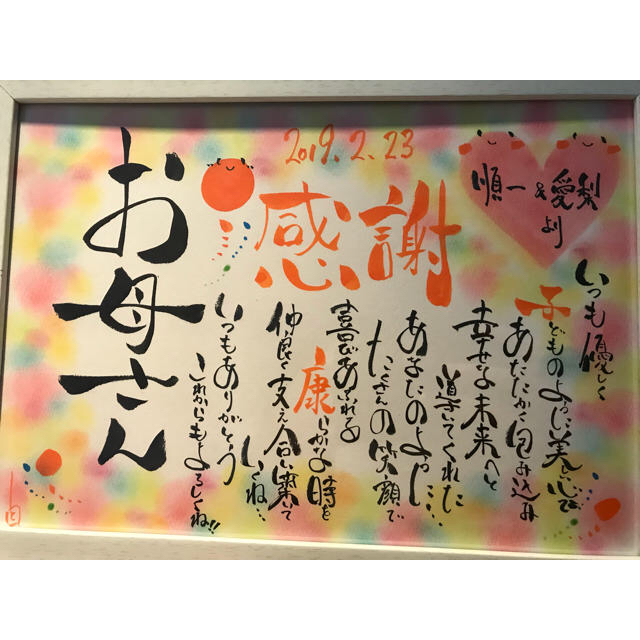 2019.2.23
順一&愛梨
より
感謝
お母さん
いつも優しく
子どものように美しい心で
あたたかく包み込み
幸せな未来へと
導いてくれた
あなたのように…
たくさんの笑顔で
喜びあふれる
康らかな時を
仲良く支え合い築いて
いくね…
いつもありがとう
これからもよろしくね!!